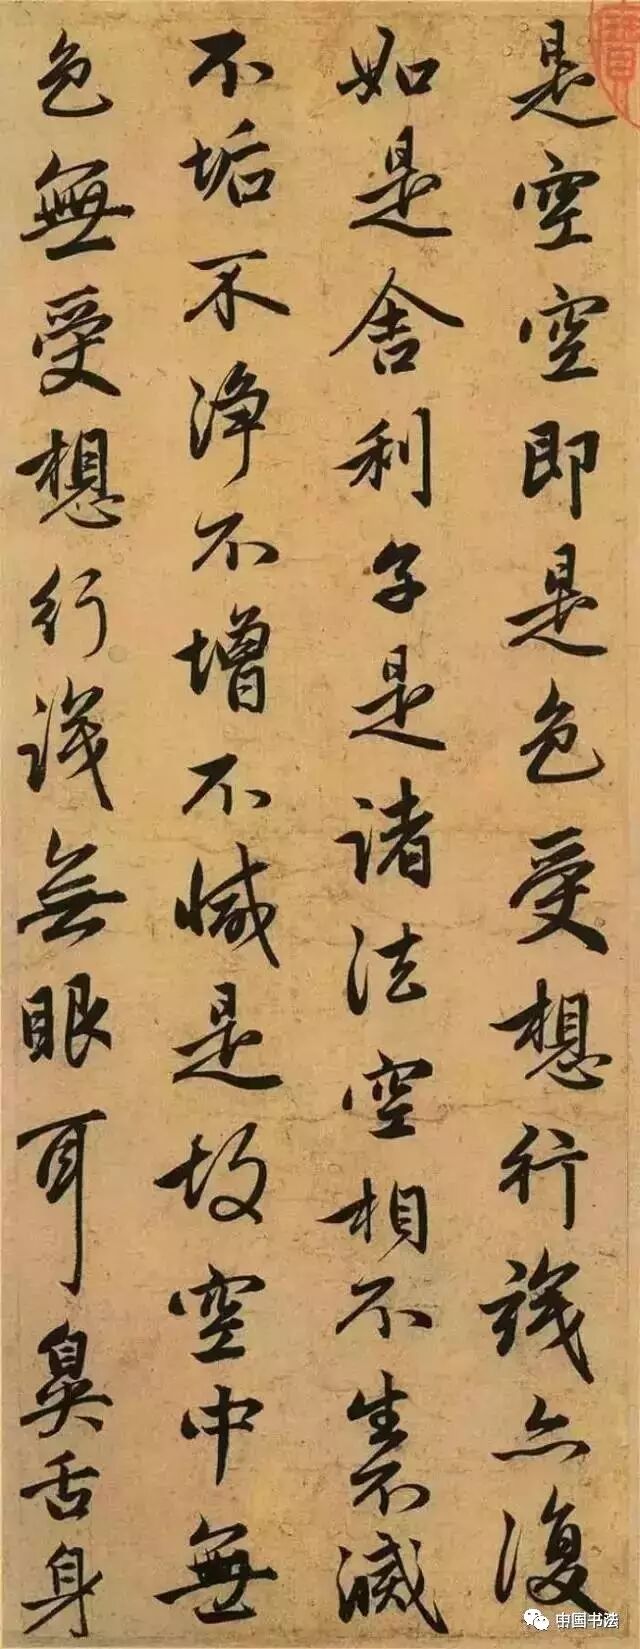 是空空即是色受想行識亦復
如是舍利子是諸法空相不生不滅
不垢不淨不增不減是故空中無
色無受想行識無眼耳鼻舌身
中国书法